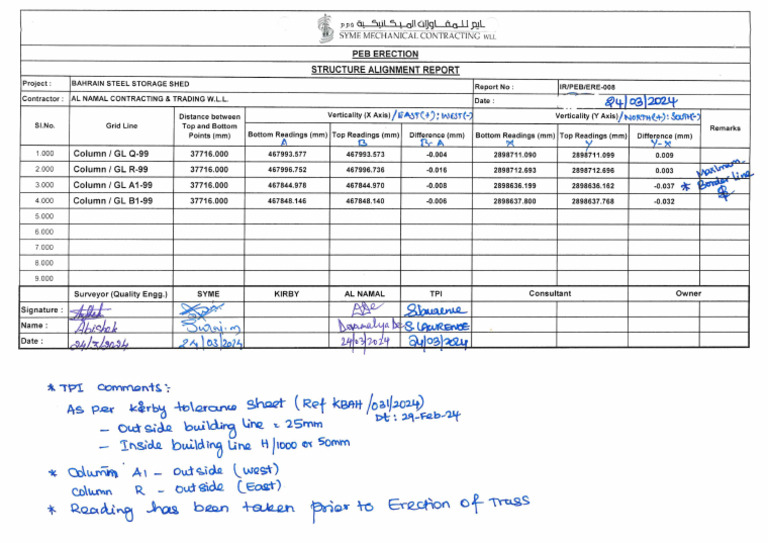 PPS سايم للمقاولات الميكانيكية
SYME MECHANICAL CONTRACTING WLL
PEB ERECTION
STRUCTURE ALIGNMENT REPORT
Project : BAHRAIN STEEL STORAGE SHED Report No : IR/PEB/ERE-008
Contractor : AL NAMAL CONTRACTING & TRADING W.L.L. Date : 24/03/2024
Sl.No. Grid Line Distance between Top and Bottom Points (mm) Verticality (X Axis) /EAST(+): WEST(-) Verticality (Y Axis) /NORTH(+): SOUTH(-) Remarks
Bottom Readings (mm) Top Readings (mm) Difference (mm) Bottom Readings (mm) Top Readings (mm) Difference (mm)
A B B-A X Y Y-X
1.000 Column / GL Q-99 37716.000 467993.577 467993.573 -0.004 2898711.090 2898711.099 0.009
2.000 Column / GL R-99 37716.000 467996.752 467996.736 -0.016 2898712.693 2898712.696 0.003 Maximum
3.000 Column / GL A1-99 37716.000 467844.978 467844.970 -0.008 2898636.199 2898636.162 -0.037 * Border line
4.000 Column / GL B1-99 37716.000 467848.146 467848.140 -0.006 2898637.800 2898637.768 -0.032
5.000
6.000
7.000
8.000
9.000
Surveyor (Quality Engg.) SYME KIRBY AL NAMAL TPI Consultant Owner
Signature :
Name : Abishek Suraj.m S. LAWRENCE
Date : 24/3/2024 24/03/2024 24/03/2024 24/03/2024
* TPI Comments:
As per kirby tolerance sheet (Ref KBAH/031/2024)
Dt: 29-Feb-24
- Outside building line = 25mm
- Inside building line H/1000 or 50mm
* Column A1 - outside (west)
column R - outside (East)
* Reading has been taken prior to Erection of Trass